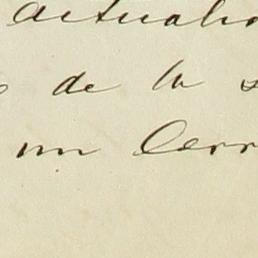 actuali
de la s
un Cerr